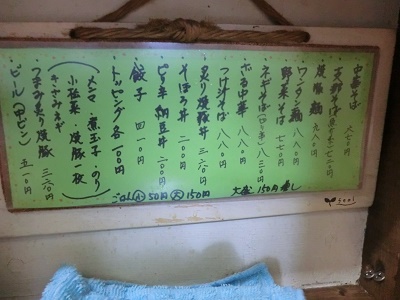 中華そば 六七〇円
支那そば
焼豚麺 九八〇円
ワンタン麺 八八〇円
野菜そば 七七〇円
ネギそば(ピリ辛) 八三〇円
ざる中華 八八〇円
つけ汁そば 八八〇円
炙り焼豚丼 三六〇円
そぼろ丼 二〇〇円
ピリ辛納豆丼 二〇〇円
餃子 四一〇円
トッピング各一〇〇円
メンマ 煮玉子 のり
小松菜 焼豚一枚
きざみネギ
つまみ炙り焼豚 三六〇円
ビール(中ビン) 五一〇円
大盛 150円増し
ごはん 小 50円 大 150円